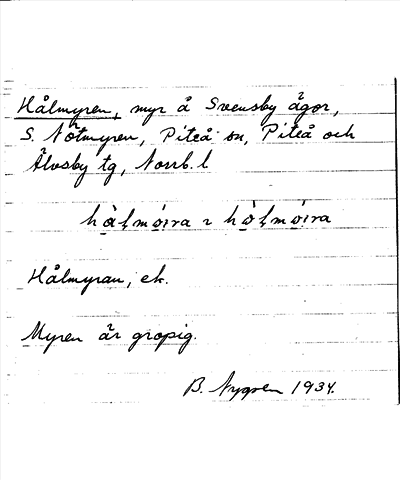 Hålmyren, myr å Svensby ägor,
S. Nötmyren, Piteå sn, Piteå och
Älvsby tg, Norrb. l
hålmöira ~ hölmöira
Hålmyran, ek.
Myren är gropig.
B. Nygren 1934.